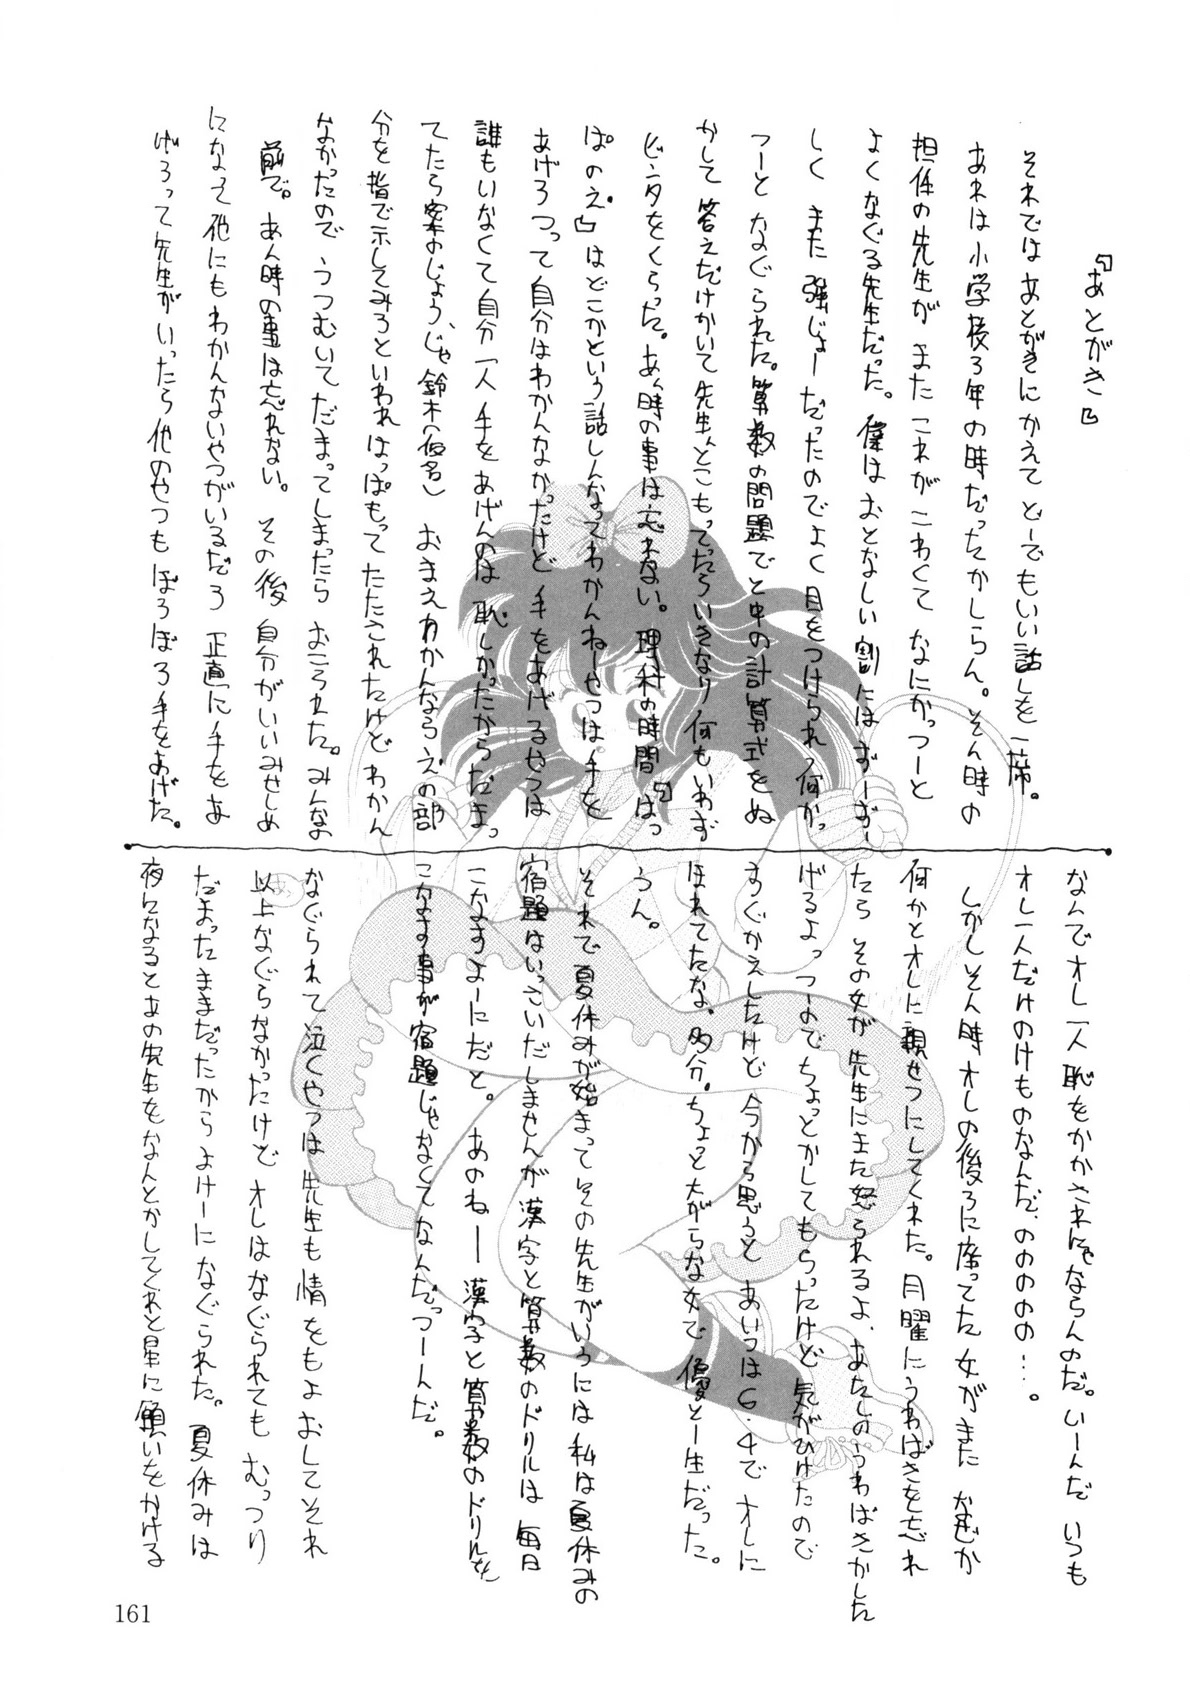 『あとがき』
それではあとがきにかえてどーでもいい話しを一席。
あれは小学校3年の時だったかしらん。そん時の
担任の先生がまたこれがこわくてなにかっつーと
よくなぐる先生だった。僕はおとなしい割にはずーずー
しくまた強じょーだったのでよく目をつけられ何かっ
つーとなぐられた。算数の問題でと中の計算式をぬ
かして答えだけかいて先生んとこもってったらいきなり何もいわず
ビンタをくらった。あん時の事は忘れない。理科の時間『はっ
ぱのえ。』はどこかという話しんなってわかんねーやつは手を
あげろっつって自分はわかんなかったけど手をあげるやつは
誰もいなくて自分一人手をあげんのは恥しかったからだまっ
てたら案のじょう、じゃ鈴木(仮名)おまえわかんならえの部
分を指で示してみろといわれはっぱもってたたされたけどわかん
なかったのでうつむいてだまってしまったらおこられた。みんなの
前で。あん時の事は忘れない。その後自分がいいみせしめ
になって他にもわかんないやつがいるだろ正直に手をあ
げろって先生がいったら他のやつもぽろぽろ手をあげた。
なんでオレ一人恥をかかされにゃならんのだ。いーんだいつも
オレ一人だけのけものなんだ、のののの…。
しかしそん時オレの後ろに座ってた女がまたなぜか
何かとオレに親せつにしてくれた。月曜にうわばきを忘れ
たらその女が先生にまた怒られるよ、あたしのうわばきかした
げるよっつーのでちょっとかしてもらったけど気がひけたので
すぐかえしたけど今から思うとあいつは6.4でオレに
ほれてたな、多分。ちょっと大がらな女で優とー生だった。
うん。
それで夏休みが始まってその先生がいうには私は夏休みの
宿題はいっさいだしませんが漢字と算数のドリルは毎日
こなすよーにだと。あのねー漢字と算数のドリルを
こなす事が宿題じゃなくてなんだっつーんだ。
なぐられて泣くやつは先生も情をもよおしてそれ
以上なぐらなかったけどオレはなぐられてもむっつり
だまったままだったからよけーになぐられた。夏休みは
夜になるとあの先生をなんとかしてくれと星に願いをかける
161